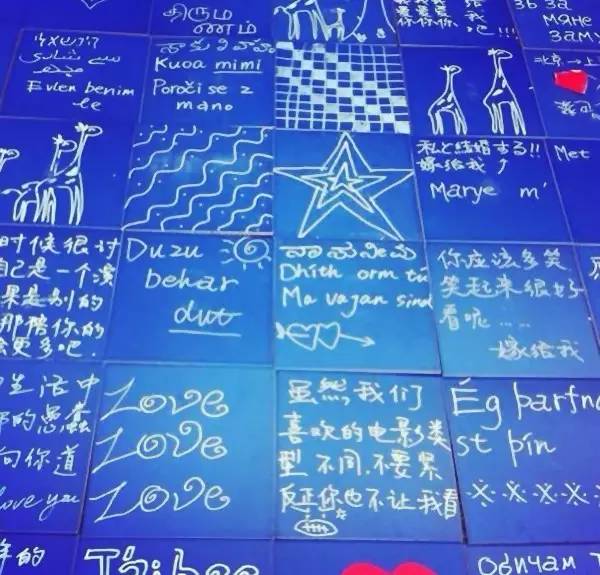 திரும
ணம்
你你你
吧!!!
ЗА
МЯНЕ
ЗАМУ
Evlen benim
le
Kuoa mimi
Poroči se z
mano
北京→上
私と結婚する!!
嫁给我
Marye m'
Met
时候很讨
自己是一个演
果是别的
那陪你的
会更多吧.
Duzu
behar
dut
Dhith orm tú
Ma vagan sind
你应该多笑,
笑起来很好
看呢....
嫁给我
生活中
的愚蠢
向你道
love you
Love
Love
Love
虽然,我们
喜欢的电影类
型不同,不要紧
反正你也不让我看
Ég þarfna
st þín
的
Обичам Т